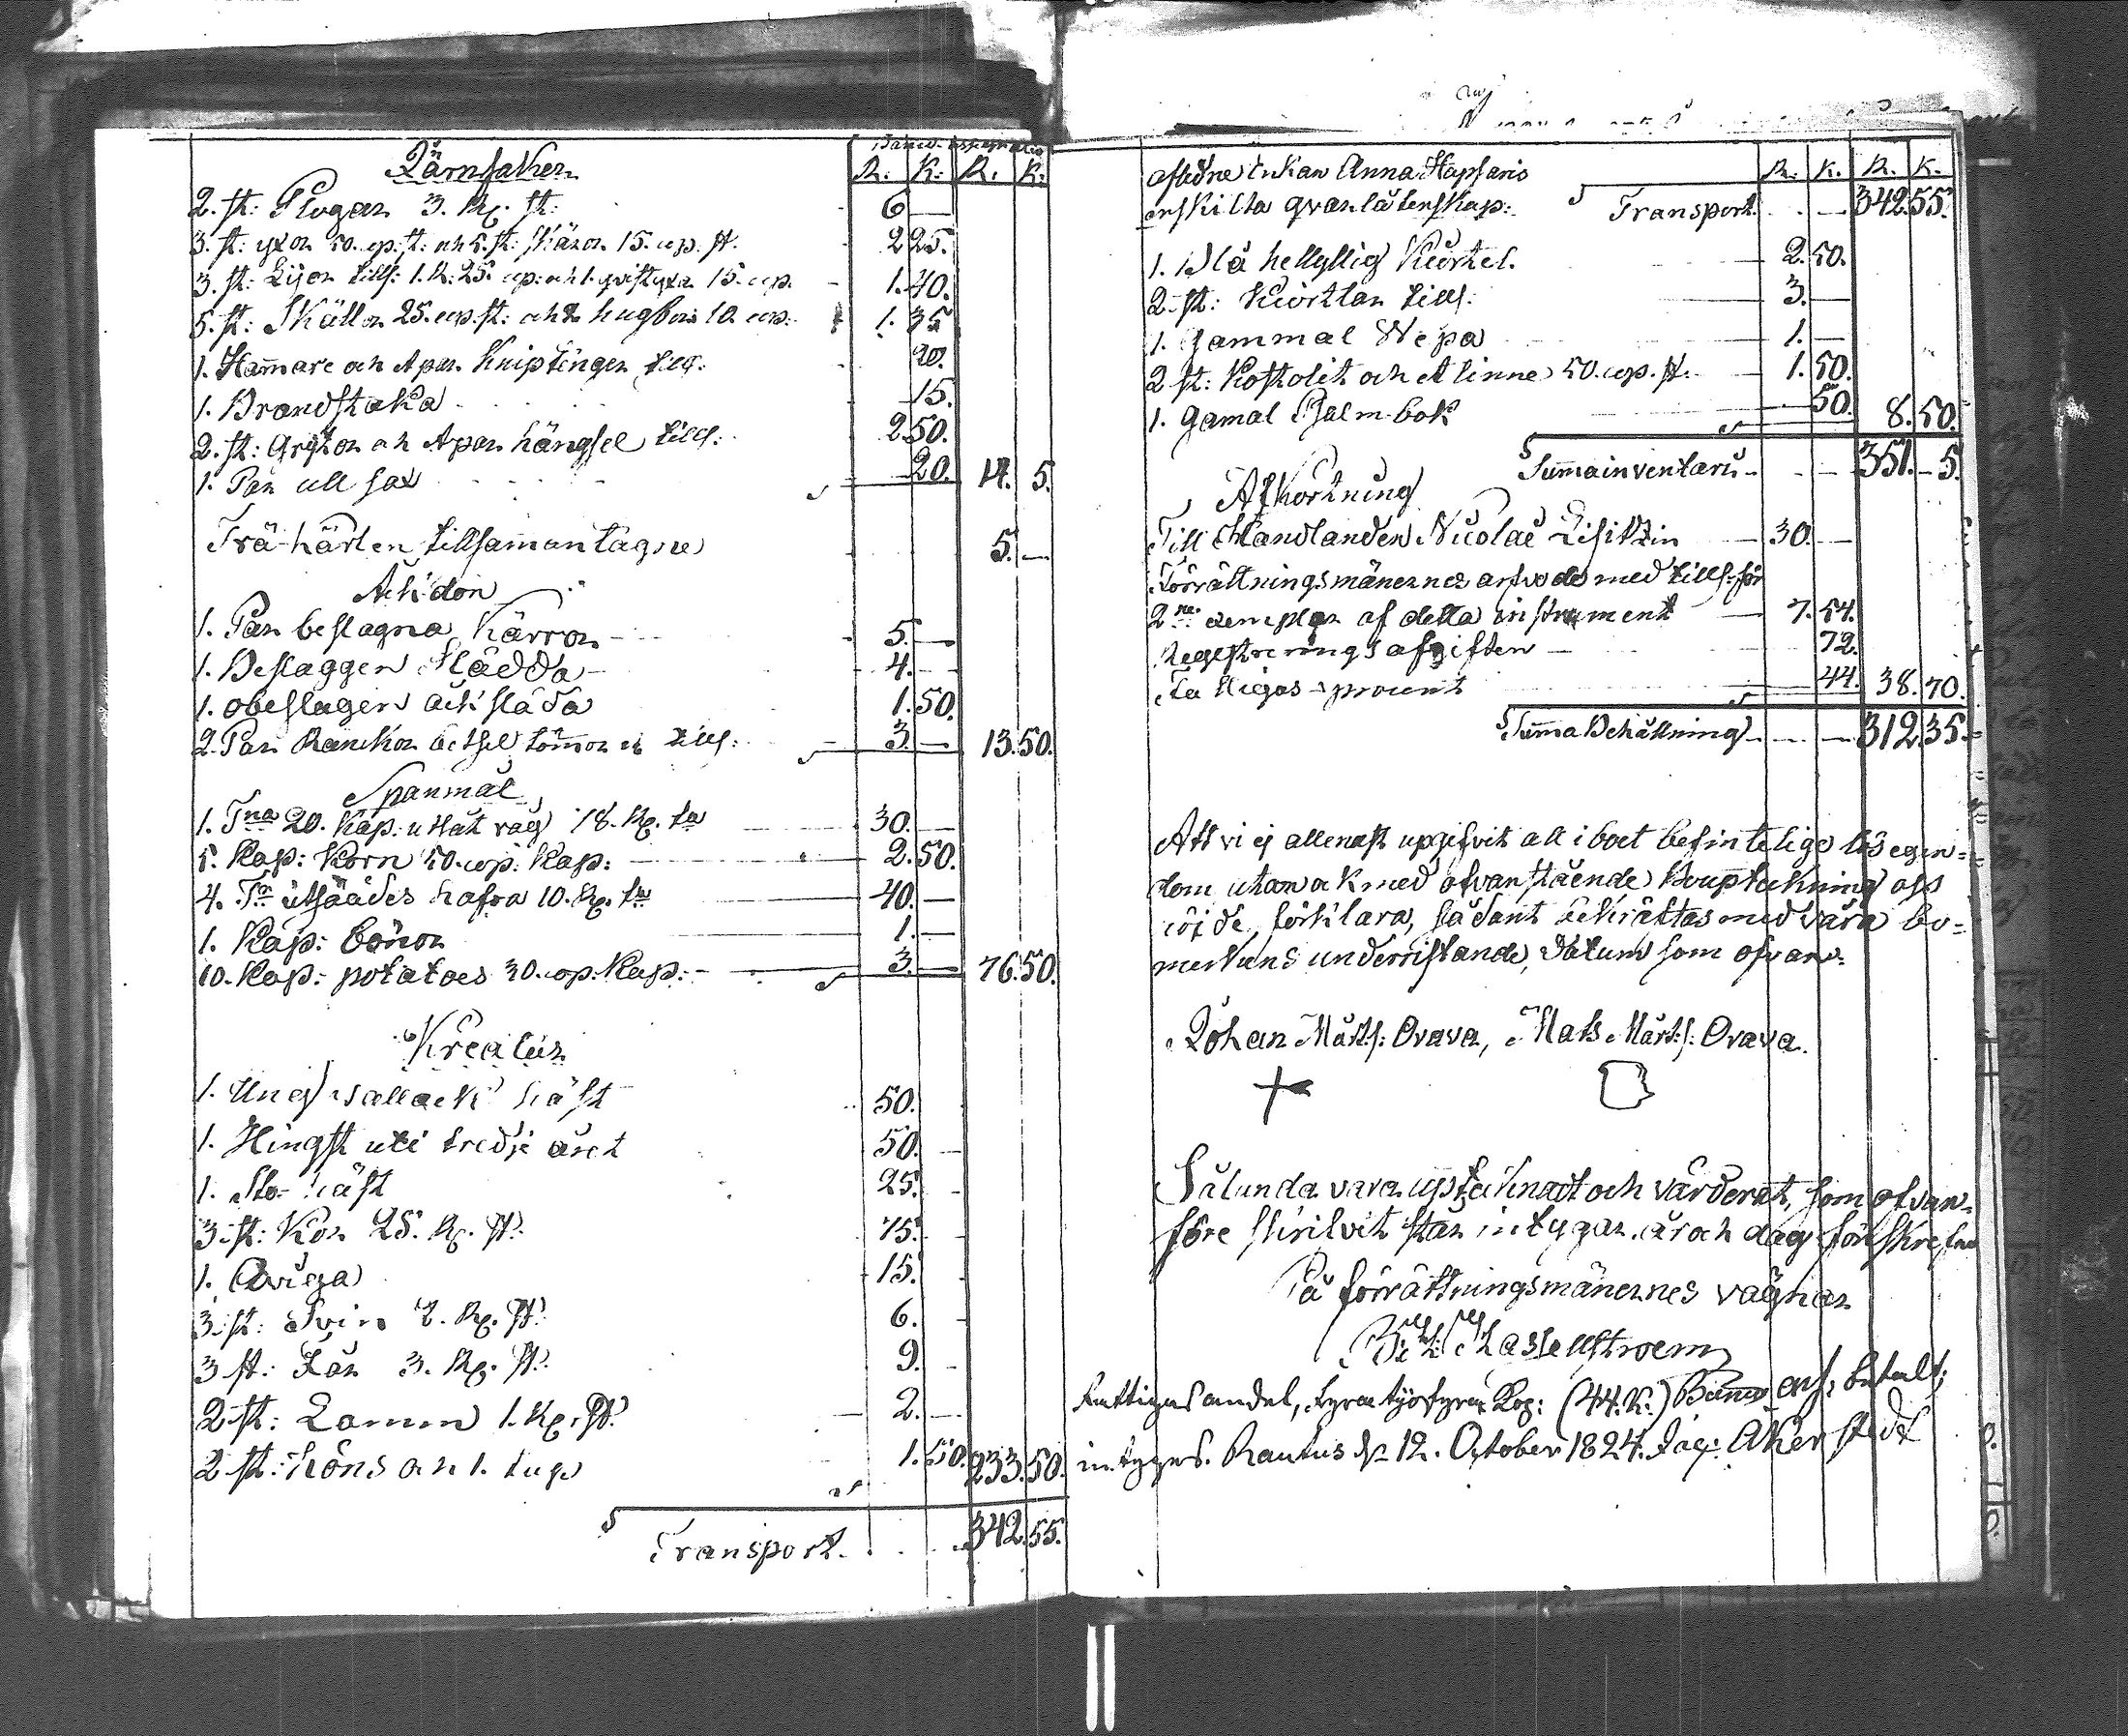 Banco assignatio
Järnsaker R. K. R. K.
2. st: Plogar 3. Rp. st: 6 —
3. st: yxor 50. cop. st: och 5. st: skäror 15. cop. st. 2 25.
3. st: Lijor tills: 1. R: 25. cop: och 1. qvistyxa 15. cop. 1. 40.
5. st: Skällor 25. cop. st: och 2 hugborr 10. cop: 1. 35
1. Ham̄are och 1 par Kniptänger till: 20.
1. Brandstaka 15.
2. st: Grytor och 1 par hängsel till: 2 50.
1. Par ull sax 20. 14. 5.
Trä-kärlen tillsamantagne 5. —
Åkdon
1. Par beslagna Kärror 5. —
1. Beslaggen Slädda 4. —
1. obeslagen åkslada 1. 50.
2. Par Rankor betsel töm̄or &c tills: 3. — 13. 50.
Spanmål
1. Tna 20. Kap: utsåt råg 18. Rp. tn 30. —
5. Kap: Korn 50. cop. Kap: 2. 50.
4. Tn utsäädes hafra 10. Rp. tn 40. —
1. Kap: bönor 1. —
10. Kap: potatoes 30. cop. Kap: 3. — 76. 50.
Kreatur
1. Ung vallack häst 50.
1. Hingst uti tredje året 50. —
1. Sto-häst 25. —
3. st: Kor 25. Rp. st: 75. —
1. Qviga 15. —
3. st: Svin 2. Rp. st: 6. —
3 st: Får 3. Rp. st: 9. —
2 st: Lamm 1. Rp. st: 2. —
2 st: höns och 1. tupp 1. 50. 233. 50.
Transport. 342. 55.
afledne Enkan Anna Hapsaris R. K. R. K.
enskilta qvarlåtenskap: Transport. — 342. 55.
1. Blå hellyllig Kiortel. 2. 50.
2. st: Kiortlar tills: 3. —
1. gammal Wepa 1. —
2 st: Kostolit och Alinne 50. cop. st: 1. 50.
1. gamal Psalm-bok 50. 8. 50.
Sum̄a inventarii 351. 5.
Afkortning
Till Handlanden Nicolaé Lisitzin 30. —
Förrättningsmänernes arfvode med tills: för
2ne exemplar af detta instrument 7. 54.
Registreringsafgiften 72.
fattigas procent 44. 38. 70.
Sum̄a Behållning 312. 35.
Att vi ej allenast upgifvit all i boet befintelige lös egen=
dom utan ock med ofvanstående Bouptekning oss
nöjde, förklara, sådant bekräftas med våra bo=
merkens underristande, datum som ofvan.
Johan Mårts: Orava, Mats Mårts: Orava.
Sålunda vara uptäknadt och värderat, som ofvan=
före skrifvit står intygar. år och dag förskrefne
På förrättningsmänernes vägnar
Hasselstroem
Fattigas andel, fyratijofyra Kop: (44. K:) Banco ass: betalt;
intygas. Rautus d. 12. October 1824. Jag: Åkerstedt